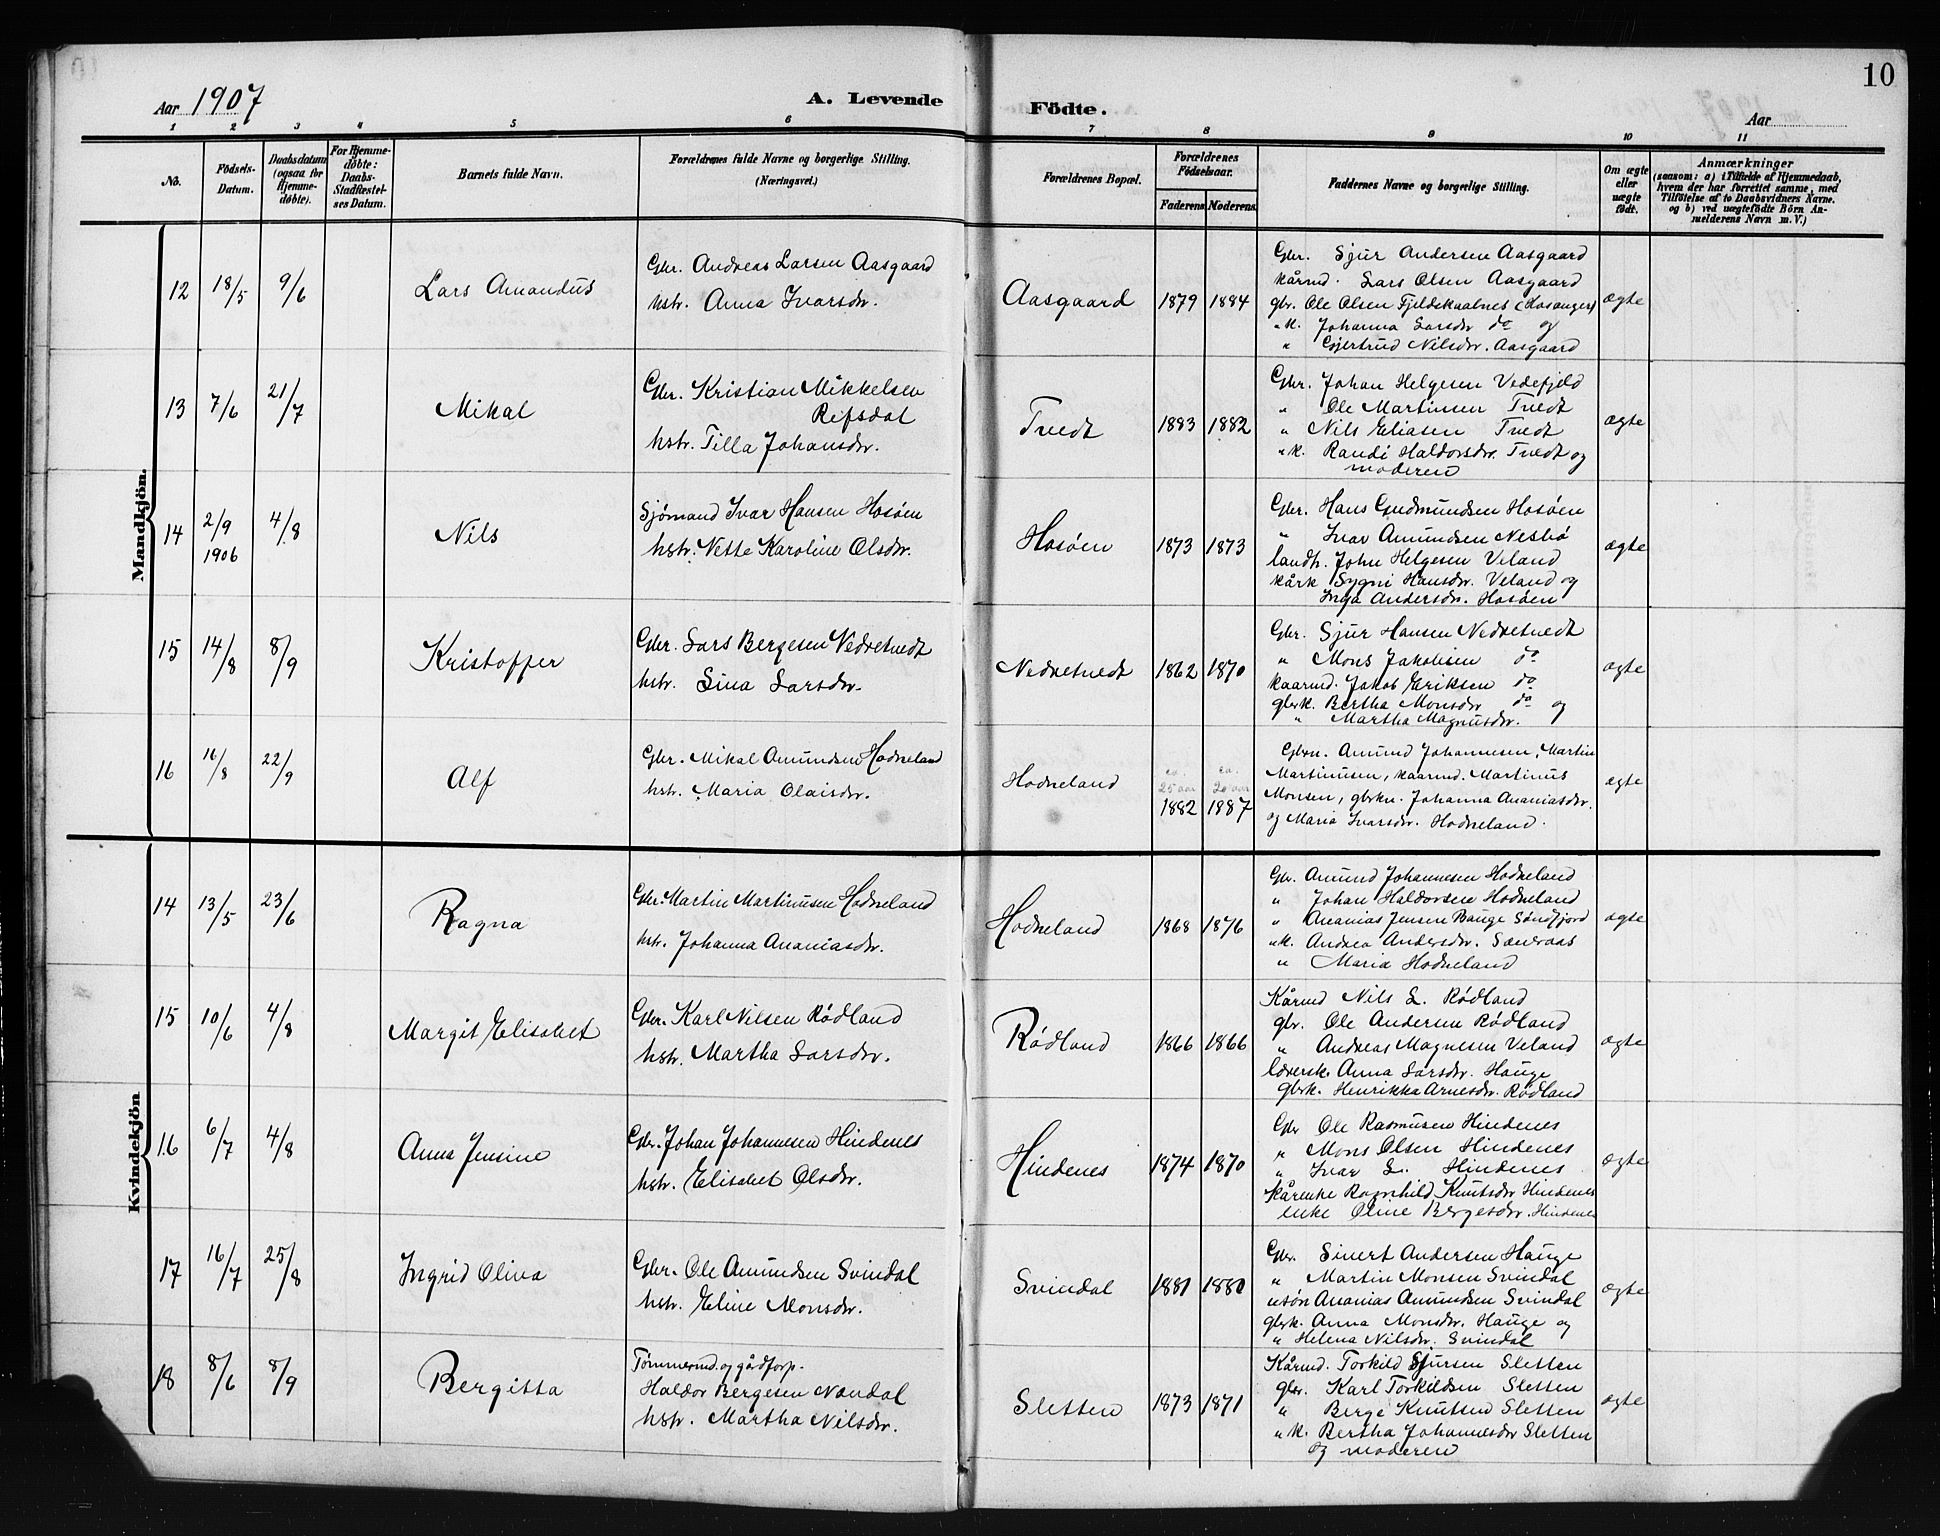 10
Aar 1907
A. Levende Födte.
Aar
1 2 3 4 5 6 7 8 9 10 11
No.
Födsels-
Datum.
Daabsdatum
(ogsaa for
Hjemme-
döbte).
For Hjemme-
döbte:
Daabs-
Stadfæstel-
ses Datum.
Barnets fulde Navn.
Forældrenes fulde Navne og borgerlige Stilling.
(Næringsvei.)
Forældrenes Bopæl.
Forældrenes
Födselsaar.
Faderens Moderens
Faddernes Navne og borgerlige Stilling.
Om ægte
eller
uægte
födt.
Anmærkninger
(saasom: a) i Tilfælde af Hjemmedaab,
hvem der har forrettet samme, med
Tilföielse af to Daabsvidners Navne.
og b) ved uægtefödte Börn An-
melderens Navn m. V.)
Mandkjön.
12 18/5 9/6 Lars Amandus
Gbr. Andreas Larsen Aasgaard
hstr. Anna Ivarsdr.
Aasgaard 1879 1884
Gbr. Sjur Andersen Aasgaard
kårmd. Lars Olsen Aasgaard
gbr. Ole Olsen Fjeldskaalnes (Hosanger)
"k. Johanna Larsdr do og
" Gjertrud Nilsdr. Aasgaard
ægte
13 7/6 21/7 Mikal
Gbr. Kristian Mikkelsen
Refsdal
hstr. Tilla Johansdr.
Tvedt 1883 1882
Gbr. Johan Helgesen Vedefjeld
" Ole Martinsen Tvedt
" Nils Eliasen Tvedt
"k. Randi Haldorsdr. Tvedt og
moderen
ægte
14 2/9 4/8 Nils
1906
Sjømand Ivar Hansen Hosøen
hstr. Nette Karoline Olsdr.
Hosøen 1873 1873
Gbr. Hans Gudmundsen Hosøen
" Ivar Amundsen Nesbø
landh. John Helgesen Veland
kårk Sygni Hansdr. Veland og
Inga Andersdr. Hosøen
ægte
15 14/8 8/9 Kristoffer
Gbr. Lars Bergesen Nedretvedt
hstr. Sina Larsdr.
Nedretvedt 1862 1870
Gbr. Sjur Hansen Nedretvedt
" Mons Jakobsen do
kaarmd. Jakob Eriksen do
gbrk. Bertha Monsdr do og
" Martha Magnusdr.
ægte
16 16/8 22/9 Alf
Gbr. Mikal Amundsen Hodneland
hstr. Maria Olaisdr.
Hodneland
ca. ca.
25 aar 20 aar
1882 1887
Gbrn. Amund Johannesen, Martin
Martinusen, kaarmd. Martinus
Monsen, gbrkn. Johanna Ananiasdr.
og Maria Ivarsdr. Hodneland.
ægte
Kvindekjön
14 13/5 23/6 Ragna
Gbr. Martin Martinusen Hodneland
hstr. Johanna Ananiasdr.
Hodneland 1868 1876
Gbr. Amund Johannesen Hodneland
" Johan Haldorsen Hodneland
" Ananias Jensen Bauge Søndfjord
"k. Andrea Andersdr. Sæveraas
" Maria Hodneland
ægte
15 10/6 4/8 Margit Elisabet
Gbr. Karl Nilsen Rødland
hstr. Martha Larsdr.
Rødland 1866 1866
Kårmd Nils L. Rødland
gbr. Ole Andersen Rødland
" Andreas Magnesen Veland
lærersk. Anna Larsdr. Hauge
gbrk. Henrikka Arnesdr. Rødland
ægte
16 6/7 4/8 Anna Jensine
Gbr. Johan Johannesen Hindenes
hstr. Elisabet Olsdr.
Hindenes 1874 1870
Gbr Ole Rasmusen Hindenes
" Mons Olsen Hindenes
" Ivar L. Hindenes
kårenke Ragnhild Knutsdr Hindenes
enke Oline Bergesdr. Hindenes
ægte
17 16/7 25/8 Ingrid Oliva
Gbr. Ole Amundsen Svindal
hstr. Eline Monsdr.
Svindal 1881 1880
Gbr. Sivert Andersen Hauge
" Martin Monsen Svindal
Ananias Amundsen Svindal
gbrk. Anna Monsdr. Hauge og
" Helena Nilsdr. Svindal
ægte
18 8/6 8/9 Bergitta
Tømmermd. og gårdforp.
Haldor Bergesen Nøndal
hstr. Martha Nilsdr.
Sletten 1873 1871
Kårmd. Torkild Sjursen Sletten
gbr. Karl Torkildsen Sletten
" Berge Knutsen Sletten
"k. Bertha Johannesdr Sletten
og moderen
ægte